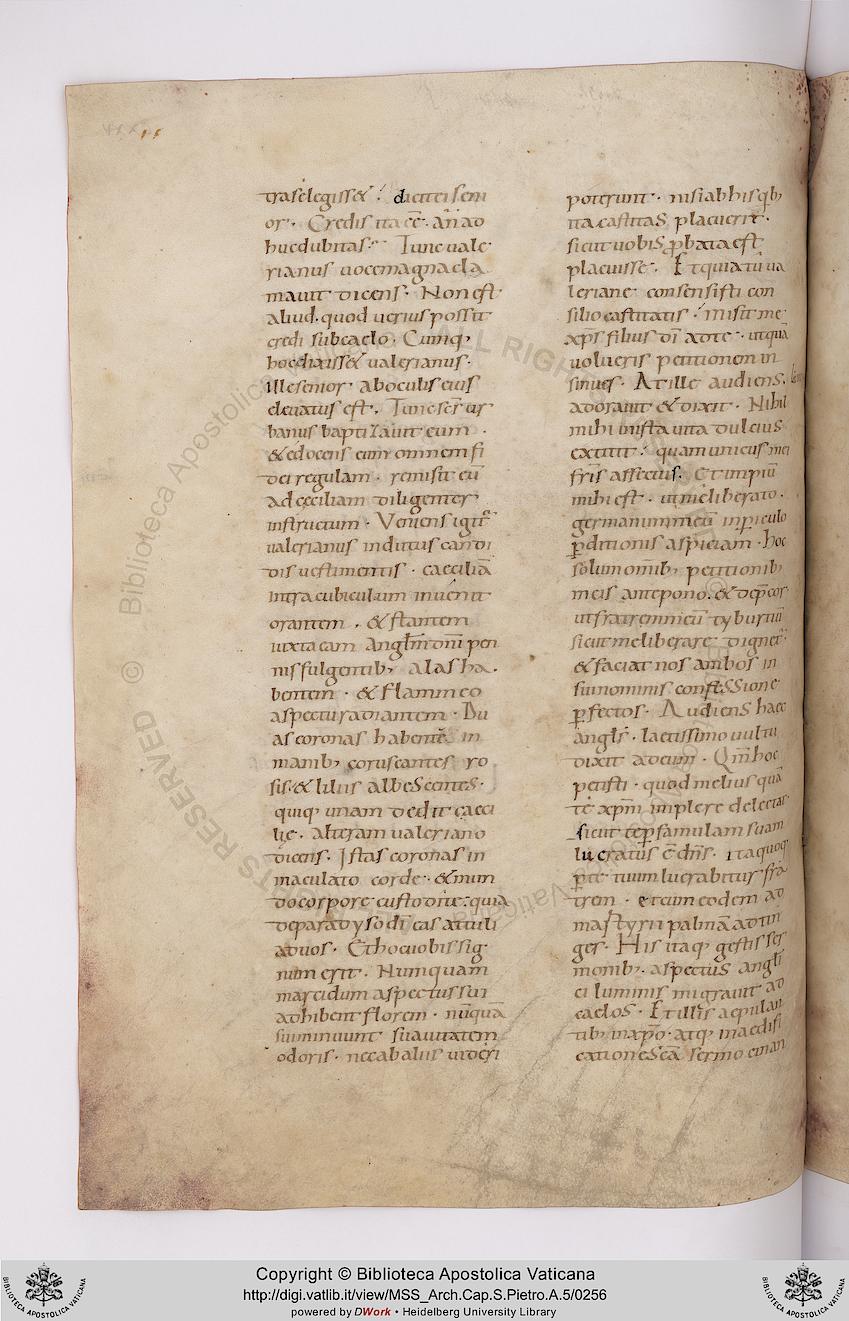 traselegiss&. dicit ei seni
or. Credis ita ēē. an ad
huc dubitas. Tunc uale
rianus uoce magna cla
mauit dicens. Non est
aliud quod uerius possit
credi sub caelo. Cumq;
hoc dixiss& ualerianus.
ille senior ab oculis eius
eleuatus est. Tunc sc̄s ur
banus baptizauit eum.
& edocens eum omnem fi
dei regulam. remisit eū
ad ceciliam diligenter
instructum. Veniens igit̄
ualerianus indutus candi
dis uestimentis. caeciliā
intra cubiculum inuenit
orantem. & stantem
iuxta eam angl̄m dn̄i pen
nis fulgentib; alas ha
bentem. & flammeo
aspectu radiantem. Du
as coronas habentē in
manib; coruscantes ro
sis. & liliis albescentes.
quiq; unam dedit caeci
lie. alteram ualeriano
dicens. Istas coronas in
maculato corde. & mun
do corpore custodite. quia
de paradyso dī eas attuli
ad uos. Et hoc uobis sig
num erit. Numquam
marcidum aspectus sui
adhibent florem. nūquā
sui minuunt suauitatem
odoris. nec ab aliis uideri
poterunt. nisi ab his qb;
ita castitas placuerit.
sicut uobis ꝓbata est
placuisse. Et quia tū ua
leriane consensisti con
silio castitatis. misit me
xp̄s filius dī ad te. ut quā
uolueris petitionem in
sinues. At ille audiens.
adorauit & dixit. Nihil
mihi in ista uita dulcius
extitit. quam unicus mei
fr̄is affectus. Et impiū
mihi est. ut me liberato.
germanum meū in ꝑiculo
ꝑditionis aspiciam. hoc
solum omīb; petitionib;
meis antepono. & dep̄cor
ut fratrem meū tyburtiū
sicut me liberare dignet̄.
& faciat nos ambos in
sui nominis confessione
ꝑfectos. Audiens haec
angl̄s. laetissimo uultu
dixit ad eum. Qm̄ hoc
petisti. quod melius quā
te xp̄m implere delectat
sicut te ꝑ famulam suam
lucratus ē dn̄s. ita quoq;
ꝑ te tuum lucrabitur fra
trem. et cum eodem ad
martyrii palmā adtin
ges. His itaq; gestis ser
monib;. aspectus angl̄i
ci luminis migrauit ad
caelos. Et illis aepulan
tib; in xp̄o. atq; in aedifi
catione sc̄ā sermocinan